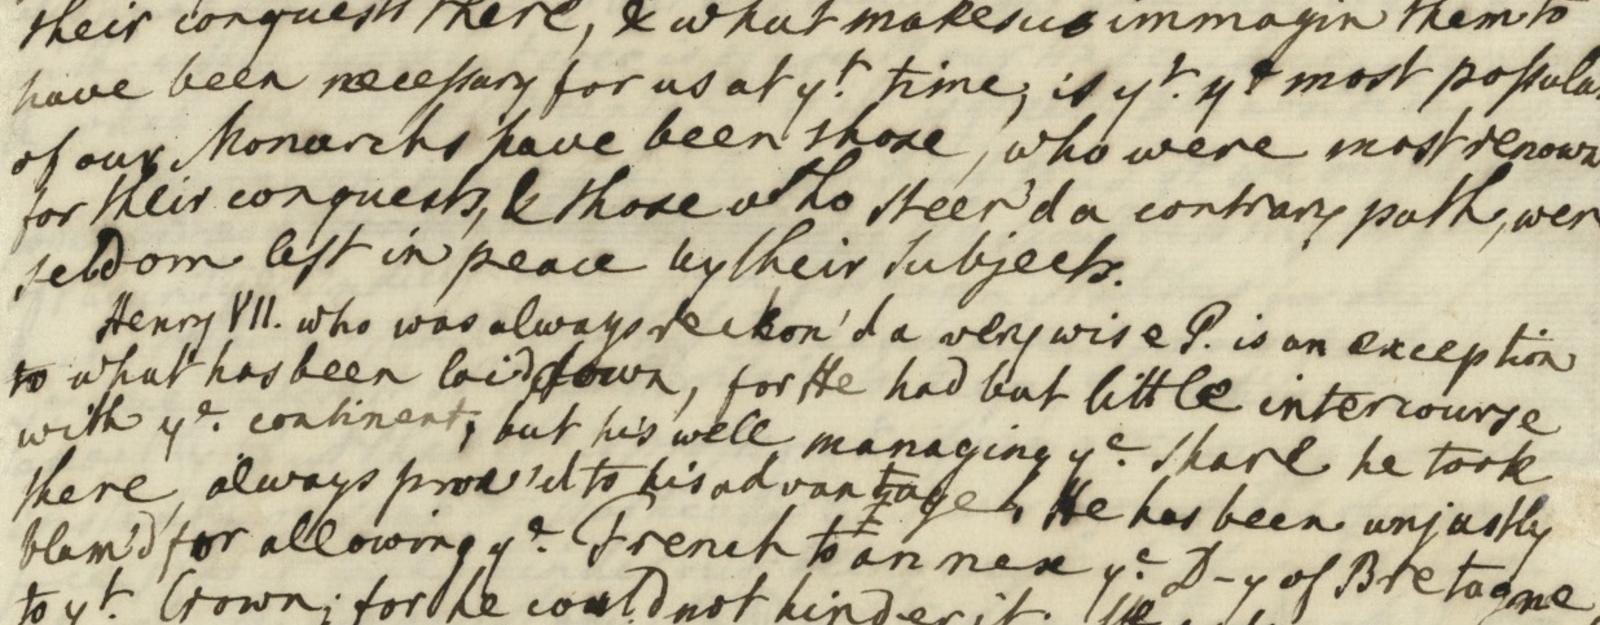 their conquests there, & what makes us immagin them to
have been necessary for us at yt. time, is yt. ye most popular
of our Monarchs have been those, who were most renown
for their conquests, & those who steer'd a contrary path, wer
seldom left in peace by their Subjects.
Henry VII. who was always reckon'd a very wise P. is an exception
to what has been laid down, for He had but little intercourse
with ye. continent; but his well managing ye. share he took
there, always prov'd to his advantage, He has been unjustly
blam'd for allowing ye. French to annex ye. D-y of Bretagne
to yt. Crown; for he could not hinder it. He